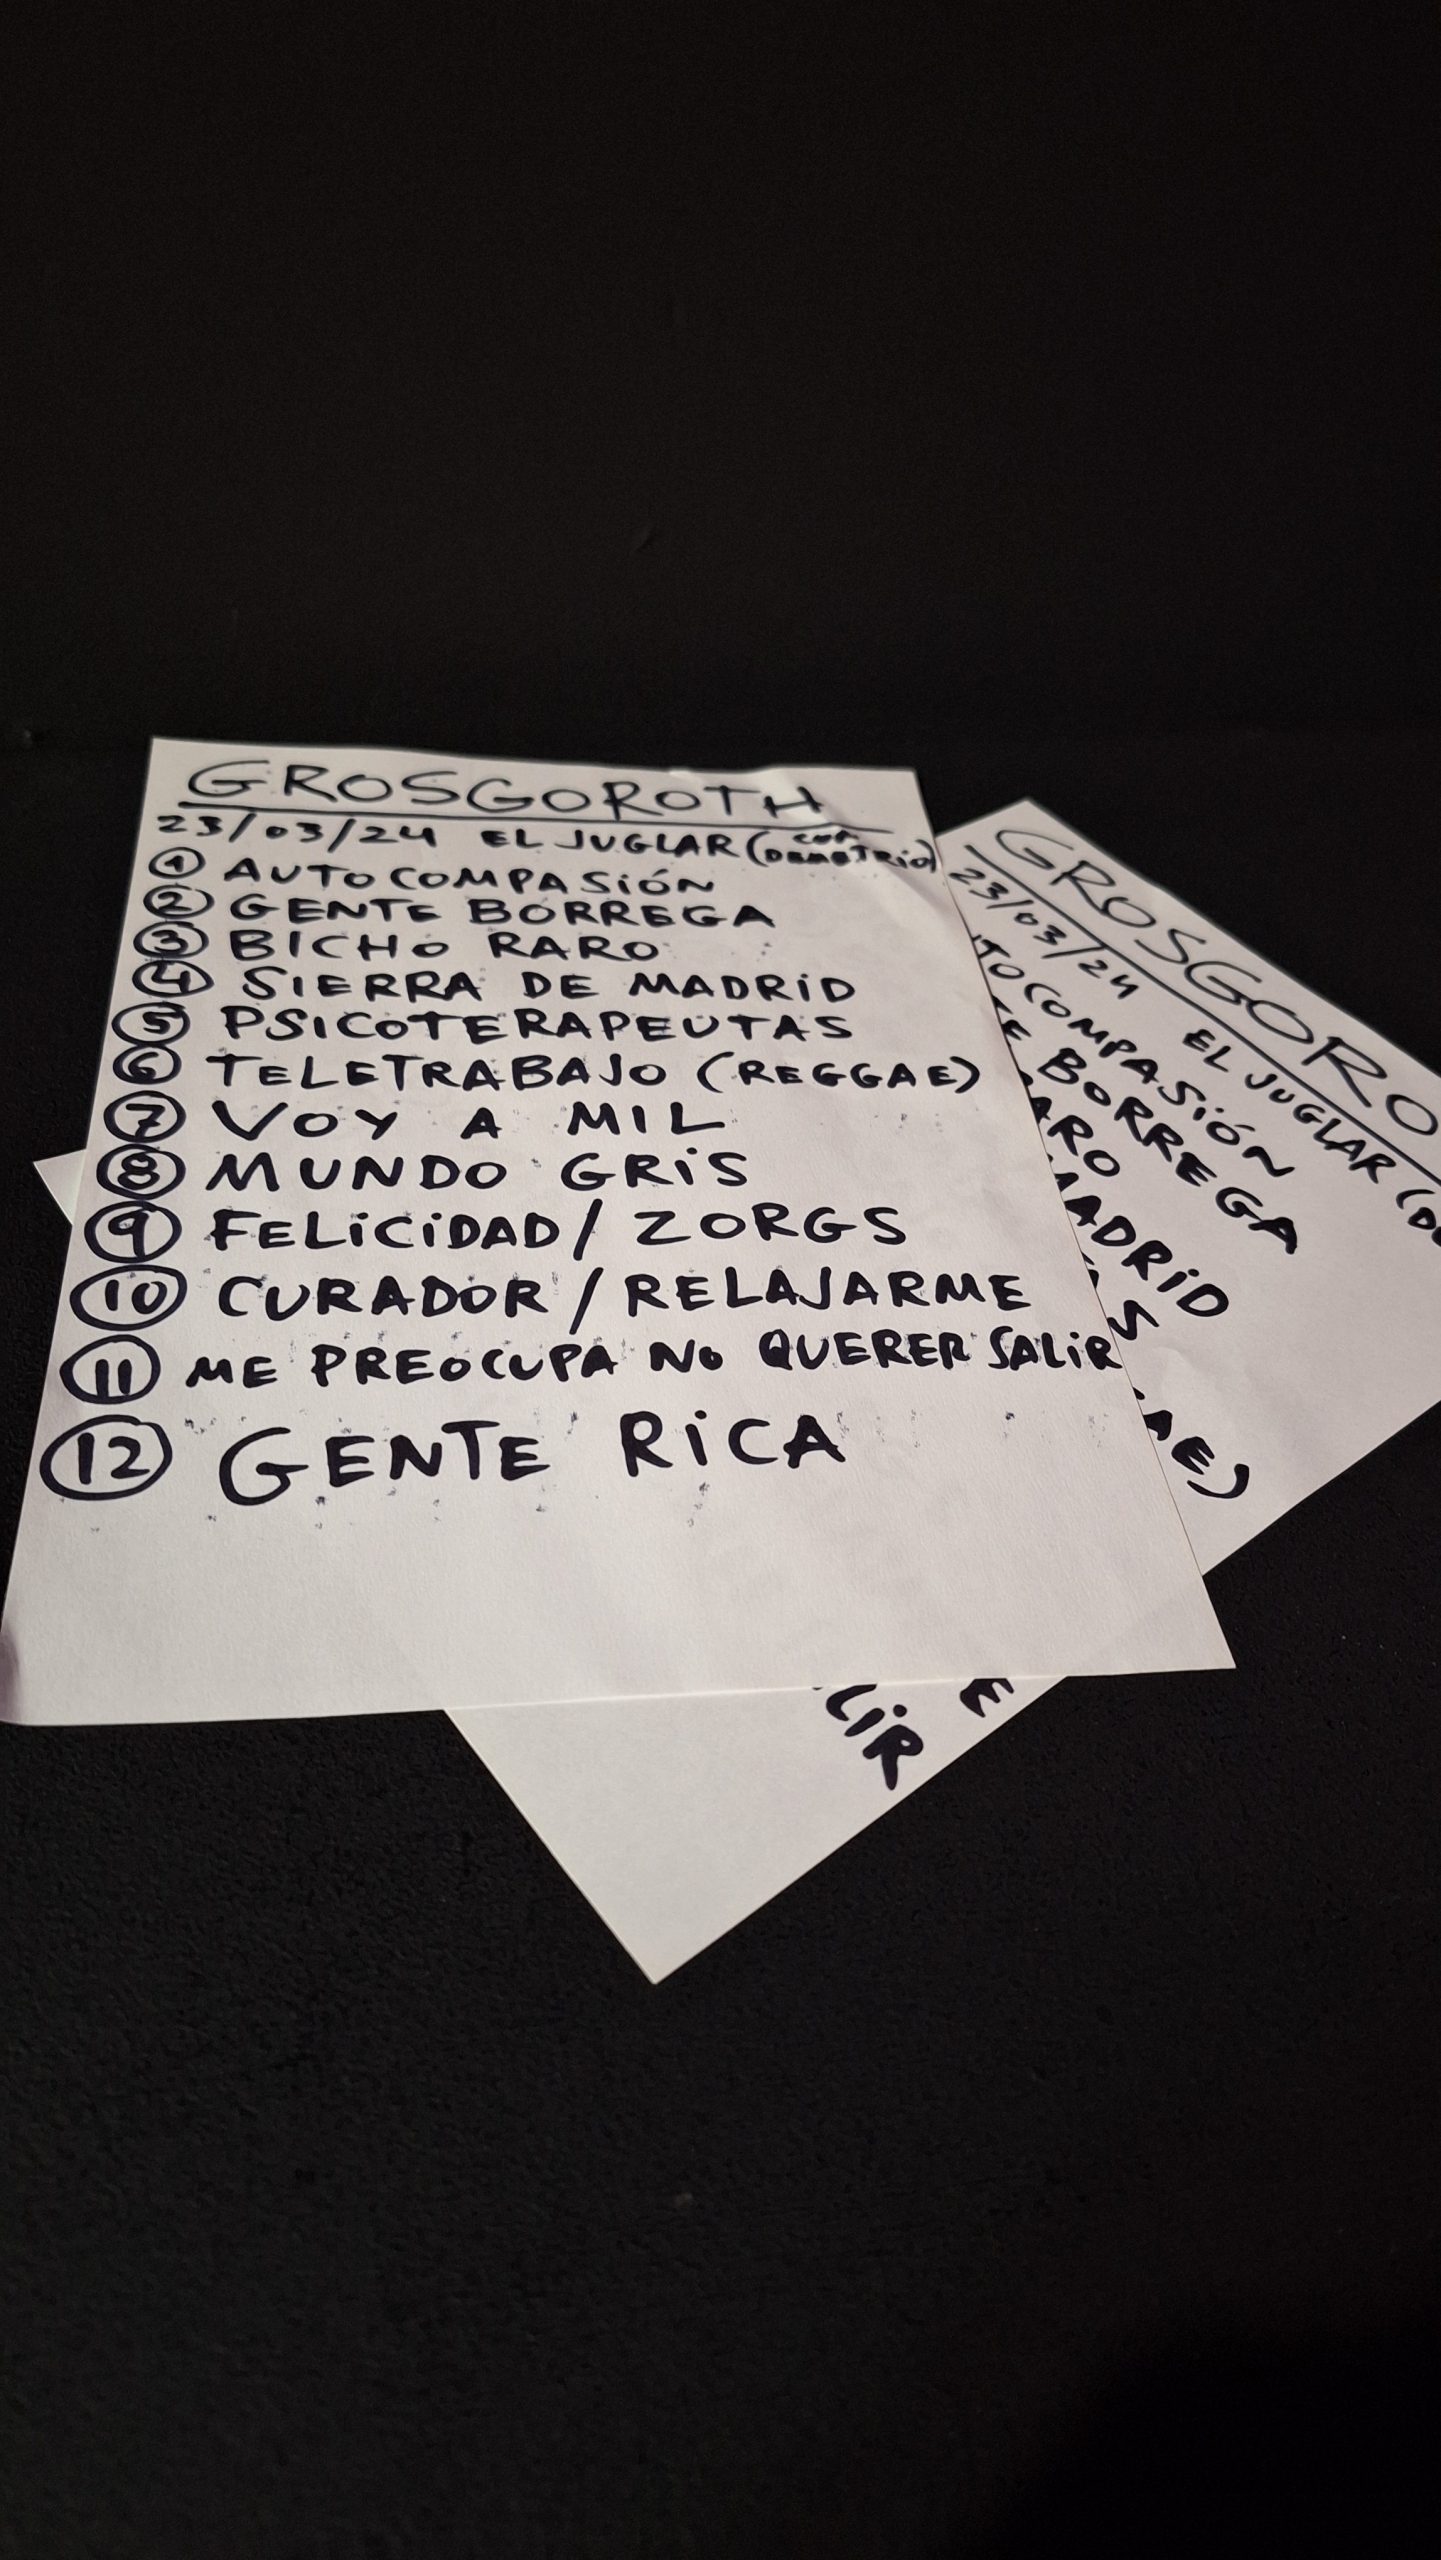 GROSGOROTH
23/03/24 EL JUGLAR (CON DEMETRIO)
1 AUTOCOMPASIÓN
2 GENTE BORREGA
3 BICHO RARO
4 SIERRA DE MADRID
5 PSICOTERAPEUTAS
6 TELETRABAJO (REGGAE)
7 VOY A MIL
8 MUNDO GRIS
9 FELICIDAD / ZORGS
10 CURADOR / RELAJARME
11 ME PREOCUPA NO QUERER SALIR
12 GENTE RICA
GROSGORO
23/03/24 EL JUGLAR (DE
TOCOMPASIÓN
TE BORREGA
ARO
MADRID
AS
AE)
LIR
E